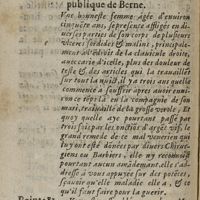 publique de Berne.
Vne honneste femme âgée d'enuiron
cinquāte ans, se presente affligée en di-
uerses parties de son corps de plusieurs
viceres sordides & malins, principale-
ment à l'endroit de la clauicule droite,
auec carie d'icelle, plus des douleur de
teste & des articles qui la trauaillent
sur tout la nuict, il y a trois ans quelle
commence à souffrir apres auoir enui-
ron ce tēps-là en la compagnie de son
mari, traicté de la grosse verole: Et
quoy quelle aye pourtant passé par
trois fois par les onctiōs d'argēt vif, le
grand remede de ce mal venerien qui
luy ont esté dōnées par diuers Chirur-
giens ou Barbiers, elle n'y recognoist
pourtant aucun amēdement. elle s'ad-
dresse à vous appuyée sur des potēces,
sçauoir qu'elle maladie elle a, & ce
qu'il faut faire pour la guerir.